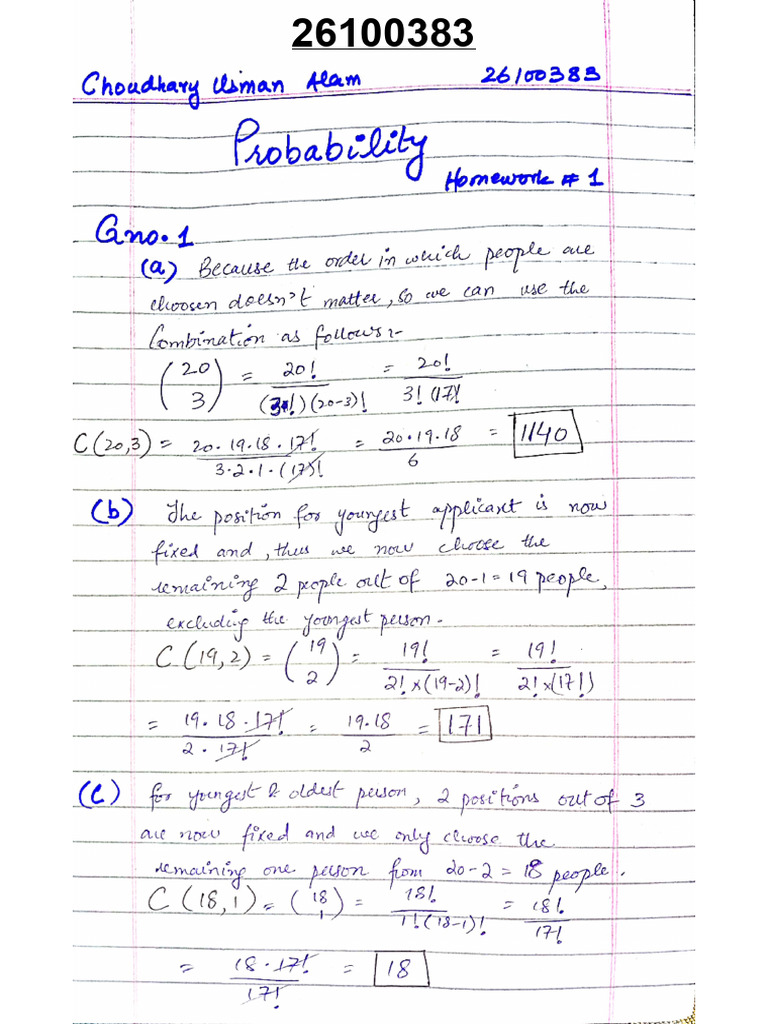 26100383
Choudhary Usman Alam 26100383
Probability
Homework # 1
Qno.1
(a) Because the order in which people are
choosen doesn't matter, so we can use the
Combination as follows:-
(20 3) = 20! / (3!)(20-3)! = 20! / 3! (17!)
C(20,3) = 20.19.18.17! / 3.2.1.(17)! = 20.19.18 / 6 = 1140
(b) The position for youngest applicant is now
fixed and, thus we now choose the
remaining 2 people out of 20-1=19 people,
excluding the youngest person.
C(19,2) = (19 2) = 19! / 2!×(19-2)! = 19! / 2!×(17!)
= 19.18.17! / 2.17! = 19.18 / 2 = 171
(c) for youngest & oldest person, 2 positions out of 3
are now fixed and we only choose the
remaining one person from 20-2=18 people.
C(18,1) = (18 1) = 18! / 1!(18-1)! = 18! / 17!
= 18.17! / 17! = 18